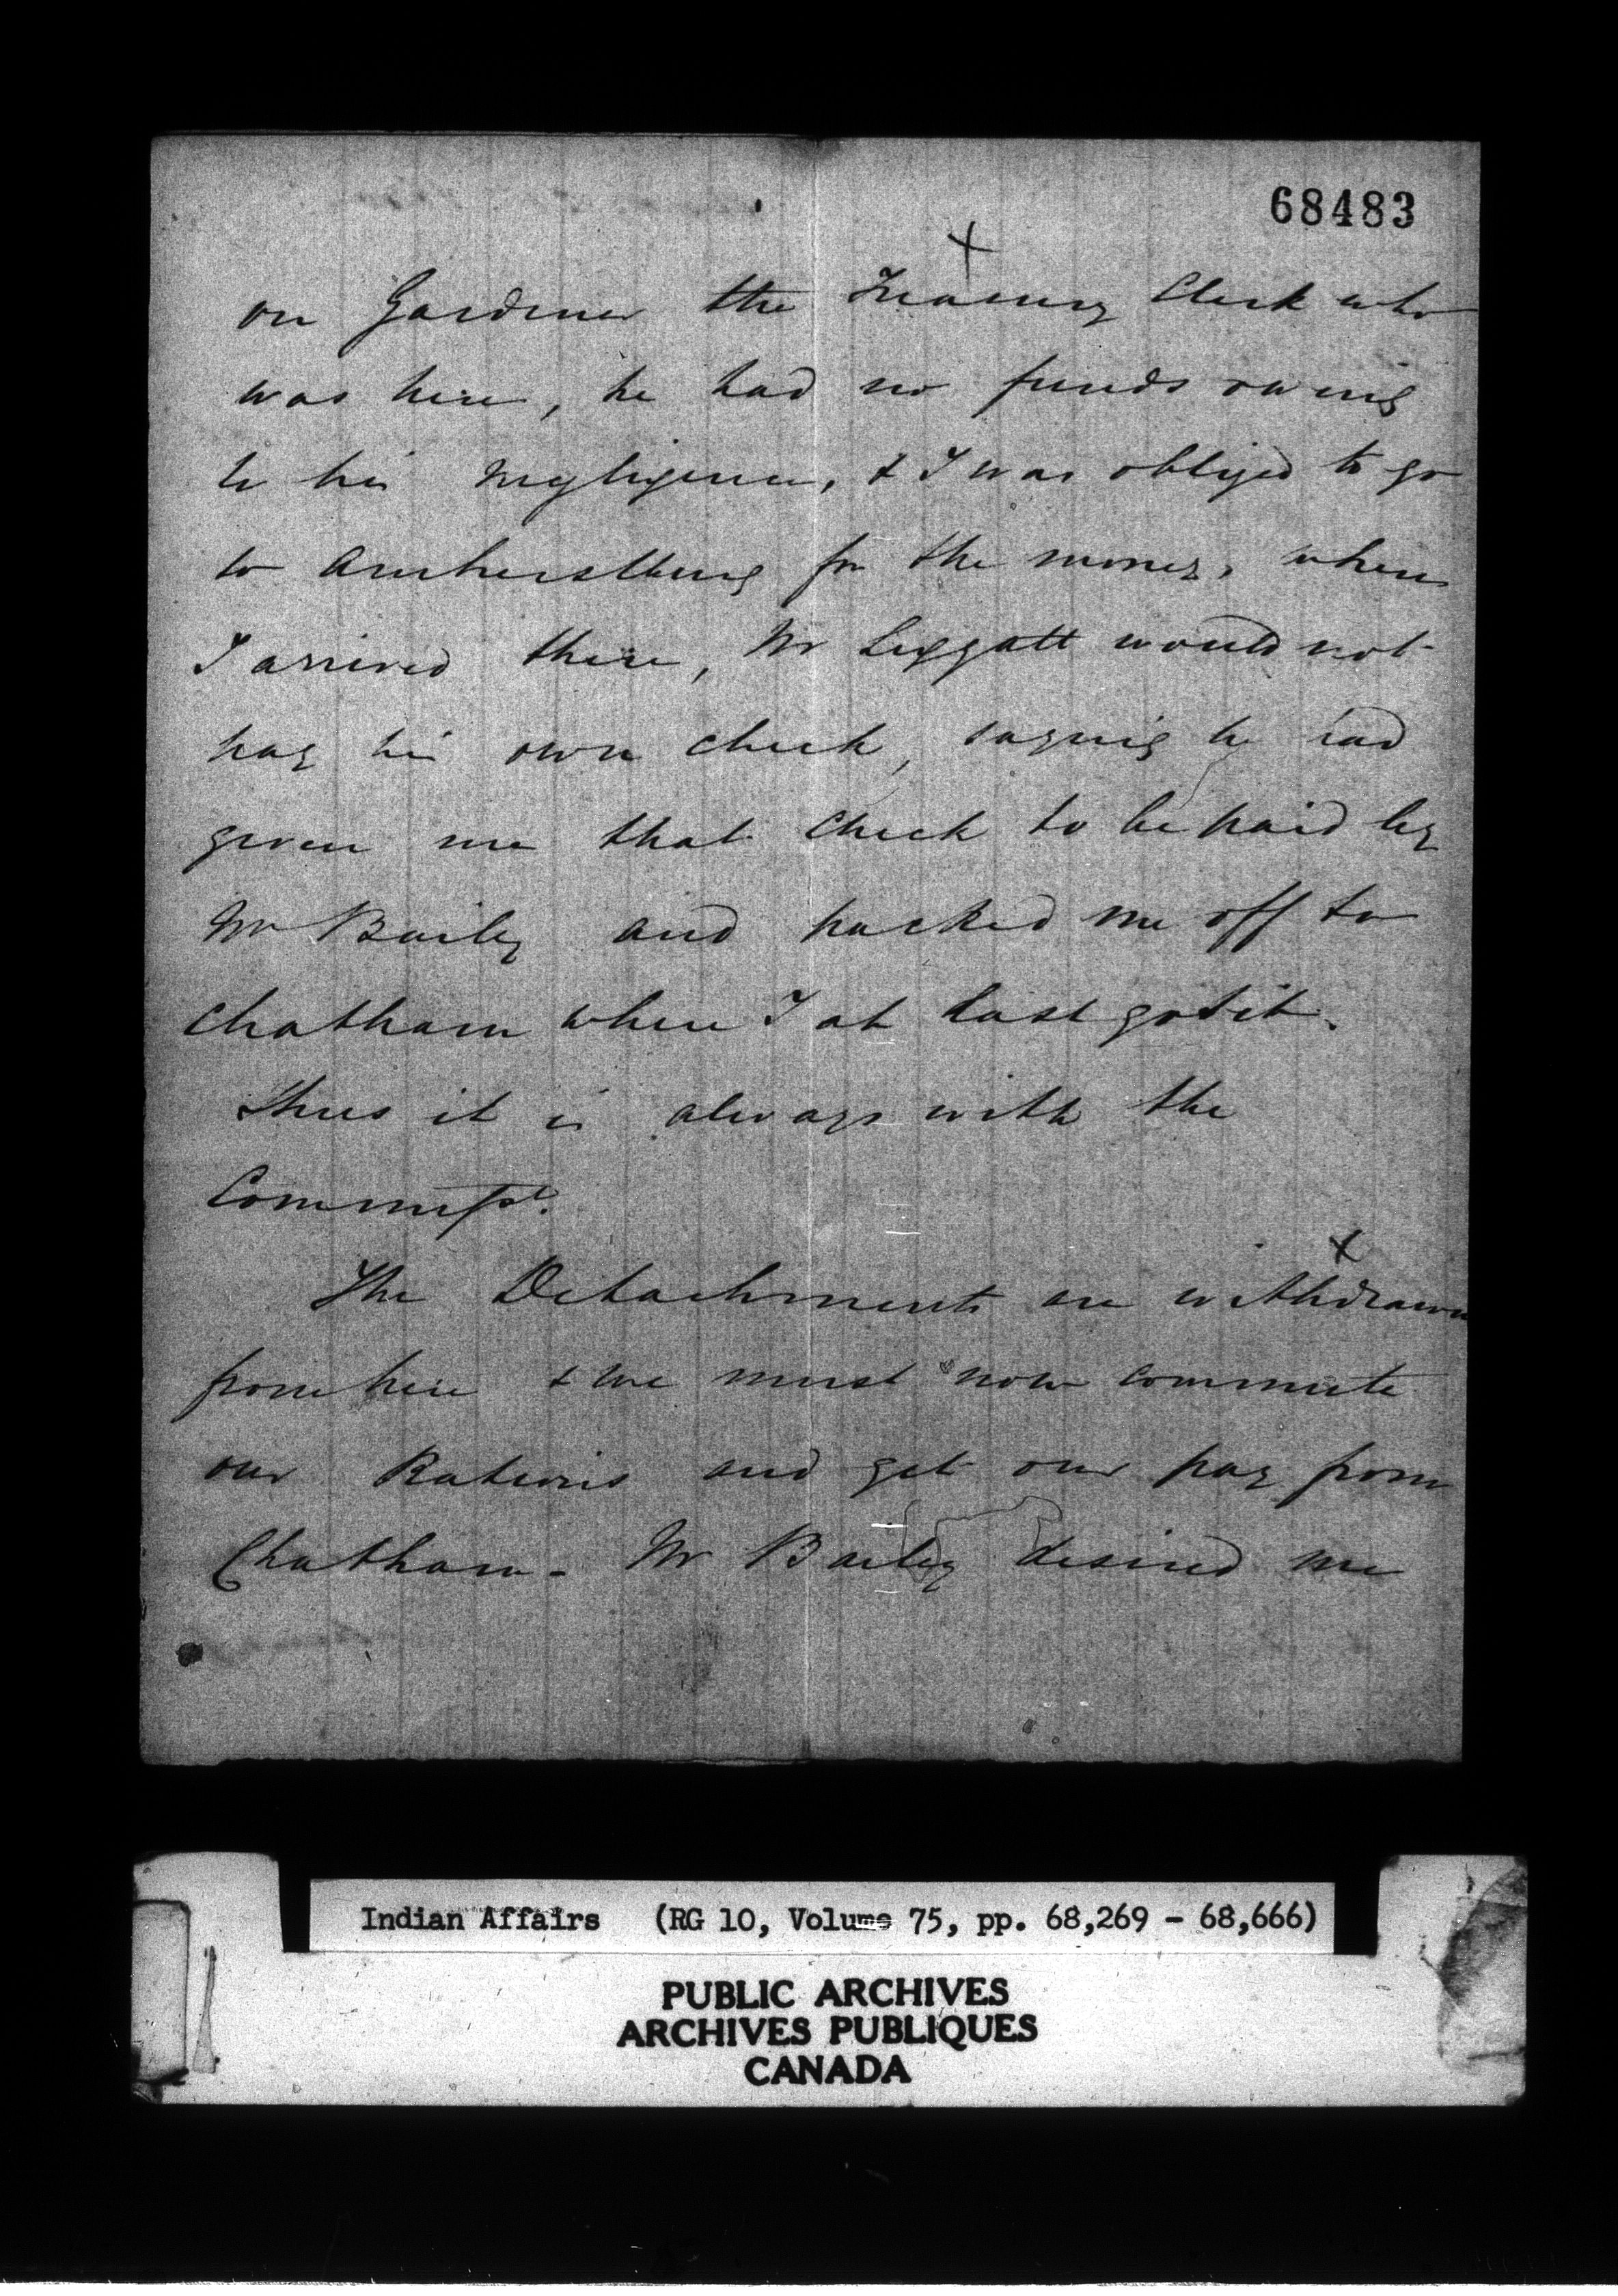 68483
on Gardiner the Treasury Clerk who
was here, he had no funds owing
to his negligence, & I was obliged to go
to Amherstburg for the money, when
I arrived there, Mr Leggatt would not
pay his own check, saying he had
given me that check to be paid by
Mr Bailey and packed me off to
Chatham where I at last got it.
Thus it is always with the
Commisst.
The Detachments are withdrawn
from here & we must now commute
our Rations and get our pay from
Chatham - Mr Bailey desired me
Indian Affairs (RG 10, Volume 75, pp. 68,269 - 68,666)
PUBLIC ARCHIVES
ARCHIVES PUBLIQUES
CANADA